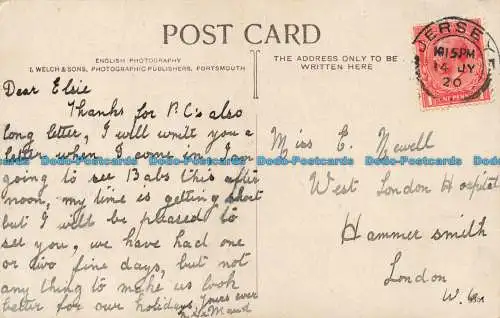 POST CARD
ENGLISH PHOTOGRAPHY
J. WELCH & SONS, PHOTOGRAPHIC PUBLISHERS, PORTSMOUTH
THE ADDRESS ONLY TO BE
WRITTEN HERE
JERSEY
1015PM
14 JY
20
Dear Elsie
Thanks for P.C's also
long letter, I will write you a
letter when I come in, I am
going to see Babs this after
noon, my time is getting short
but I will be pleased to
see you, we have had one
or two fine days, but not
any thing to make us look
better for our holidays, Yours ever
Maud
Miss E. Newell
West London Hospital
Hammersmith
London
W.
Dodo-Postcards Dodo-Postcards Dodo-Postcards Dodo-Postcards